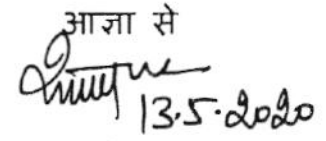 आज्ञा से
13.5.2020